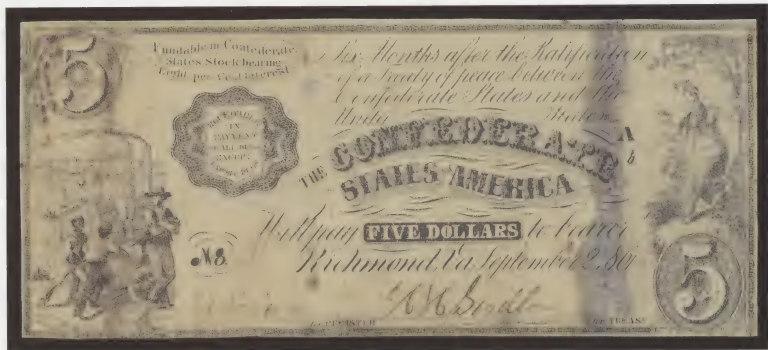 5
Fundable in Confederate
States Stock bearing
Eight per Cent interest
Six Months after the Ratification
of a Treaty of peace between the
Confederate States and the
United States
A
THE CONFEDERATE
STATES AMERICA
Will pay FIVE DOLLARS to bearer
No.
Richmond, Va September 2, 1861
5